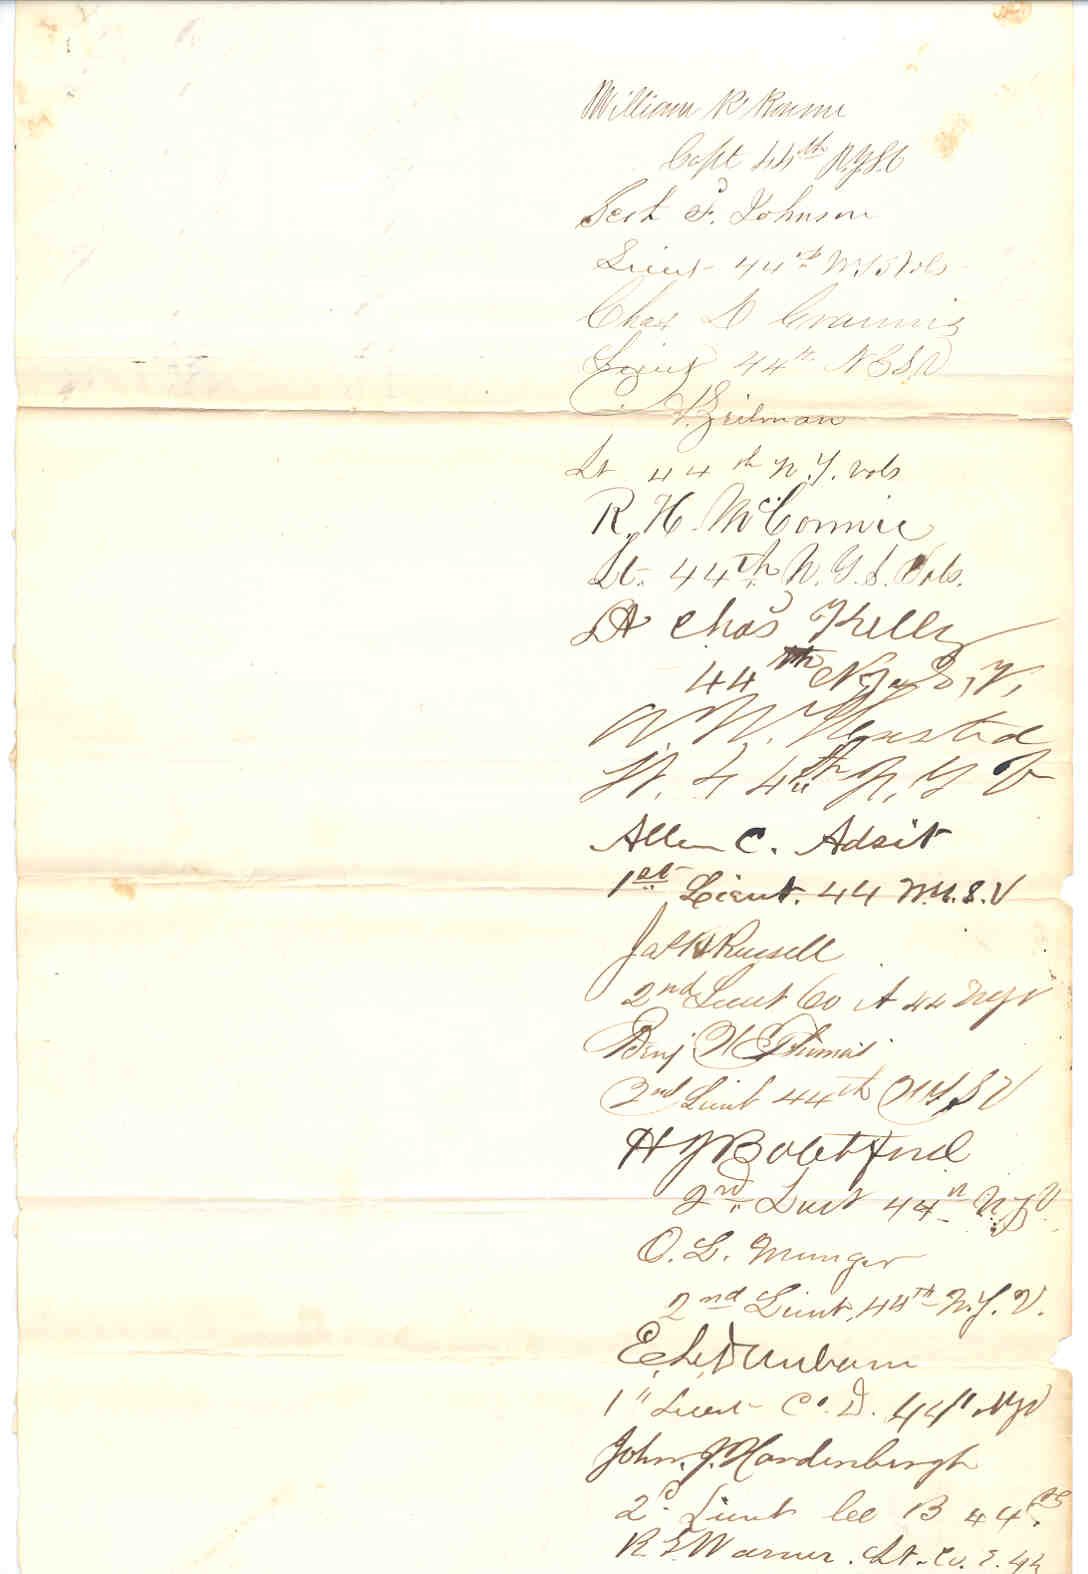 William R Bourne
Capt 44th N.Y.S.V
Seth F. Johnson
Lieut 44th N.Y.S Vols
Chas D Grannis
Lieut 44th N.Y.S.V
Gilman
Lt 44th N.Y. Vols
R. H. McCormic
Lt. 44th N. Y. S. Vols.
Lt Chas Kelly
44th N.Y. S. V.
A. N. Husted
Lt. 44th N. Y V
Allen C. Adsit
1st Lieut. 44 N.Y.S.V
Jas H Russell
2nd Lieut Co A 44 NYV
Benj. Thomas
2nd Lieut 44th NYSV
H J Botchford
2nd Lieut 44th N.Y.V.
O. L. Munger
2nd Lieut, 44th N.Y. V.
E. L. Dunham
1st Lieut Co. D. 44th NYV
John. J. Hardenbergh
2d Lieut Co B 44th
R E Warner. Lt. Co. E. 44